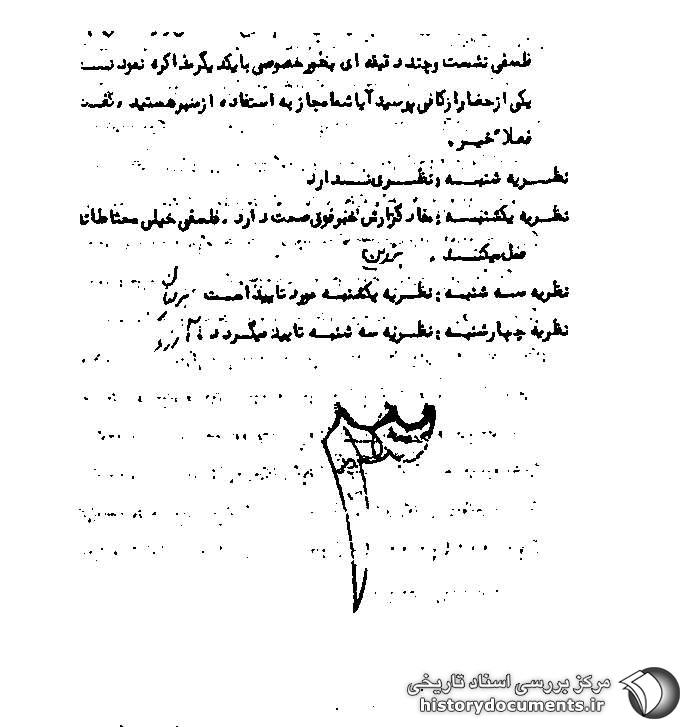 فلسفی نشست و چند دقیقه ای بطور خصوصی با یکدیگر مذاکره نمود
یکی از حضار از کافی پرسید آیا شما مجاز به استفاده از منبر هستید
فعلا" خیر .
نظریه شنبه : نظری ندارد
نظریه یکشنبه : مفاد گزارش خبر فوق صحت دارد . فلسفی خیلی محتاطانه
عمل میکند .
نظریه سه شنبه : نظریه یکشنبه مورد تایید است
نظریه چهارشنبه : نظریه سه شنبه تایید میگردد .
۳
مرکز بررسی اسناد تاریخی
historydocuments.ir